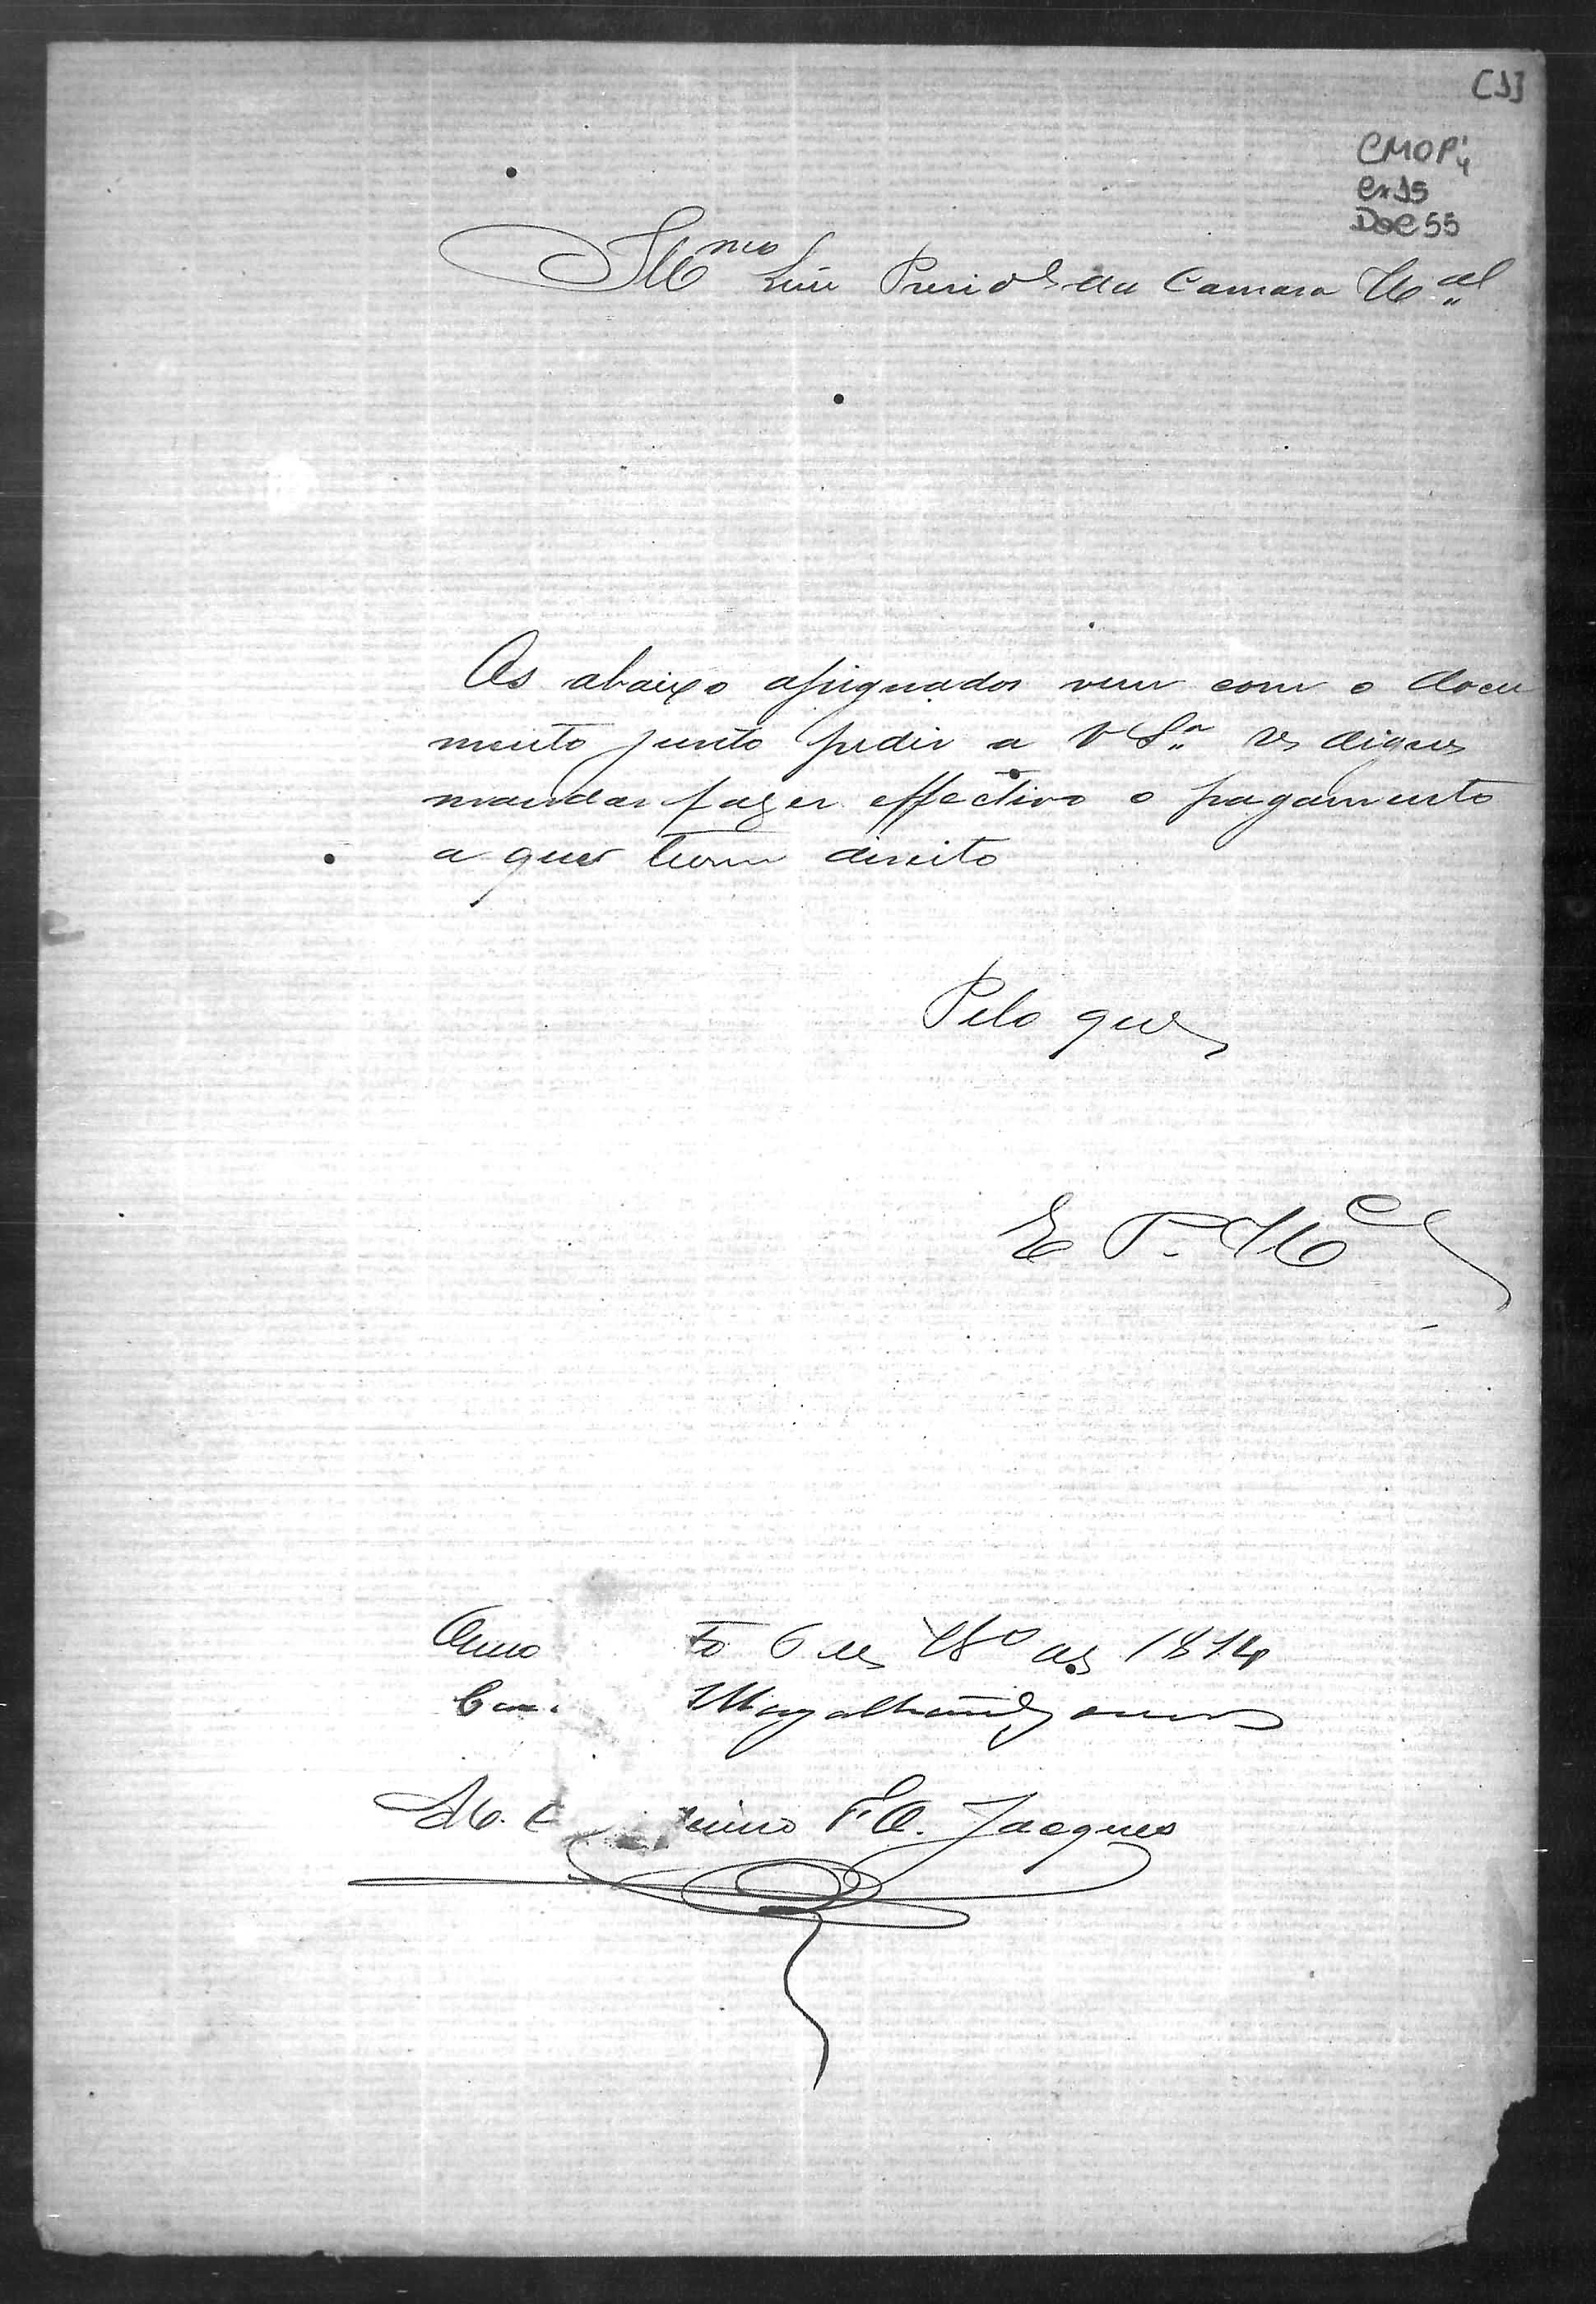 [1]
CMOP'4
Cx 15
Doc 55
Illmo Snr Presid.e da Camara Mal
Os abaixo assignados vem com o docu
mento junto pedir a V Sa se digne
mandar fazer effectivo o pagamento
a que tem direito
Pelo que
E P. Mce
Ouro to 6 de de 1874
Magalhães
M. C F. A. Jacques